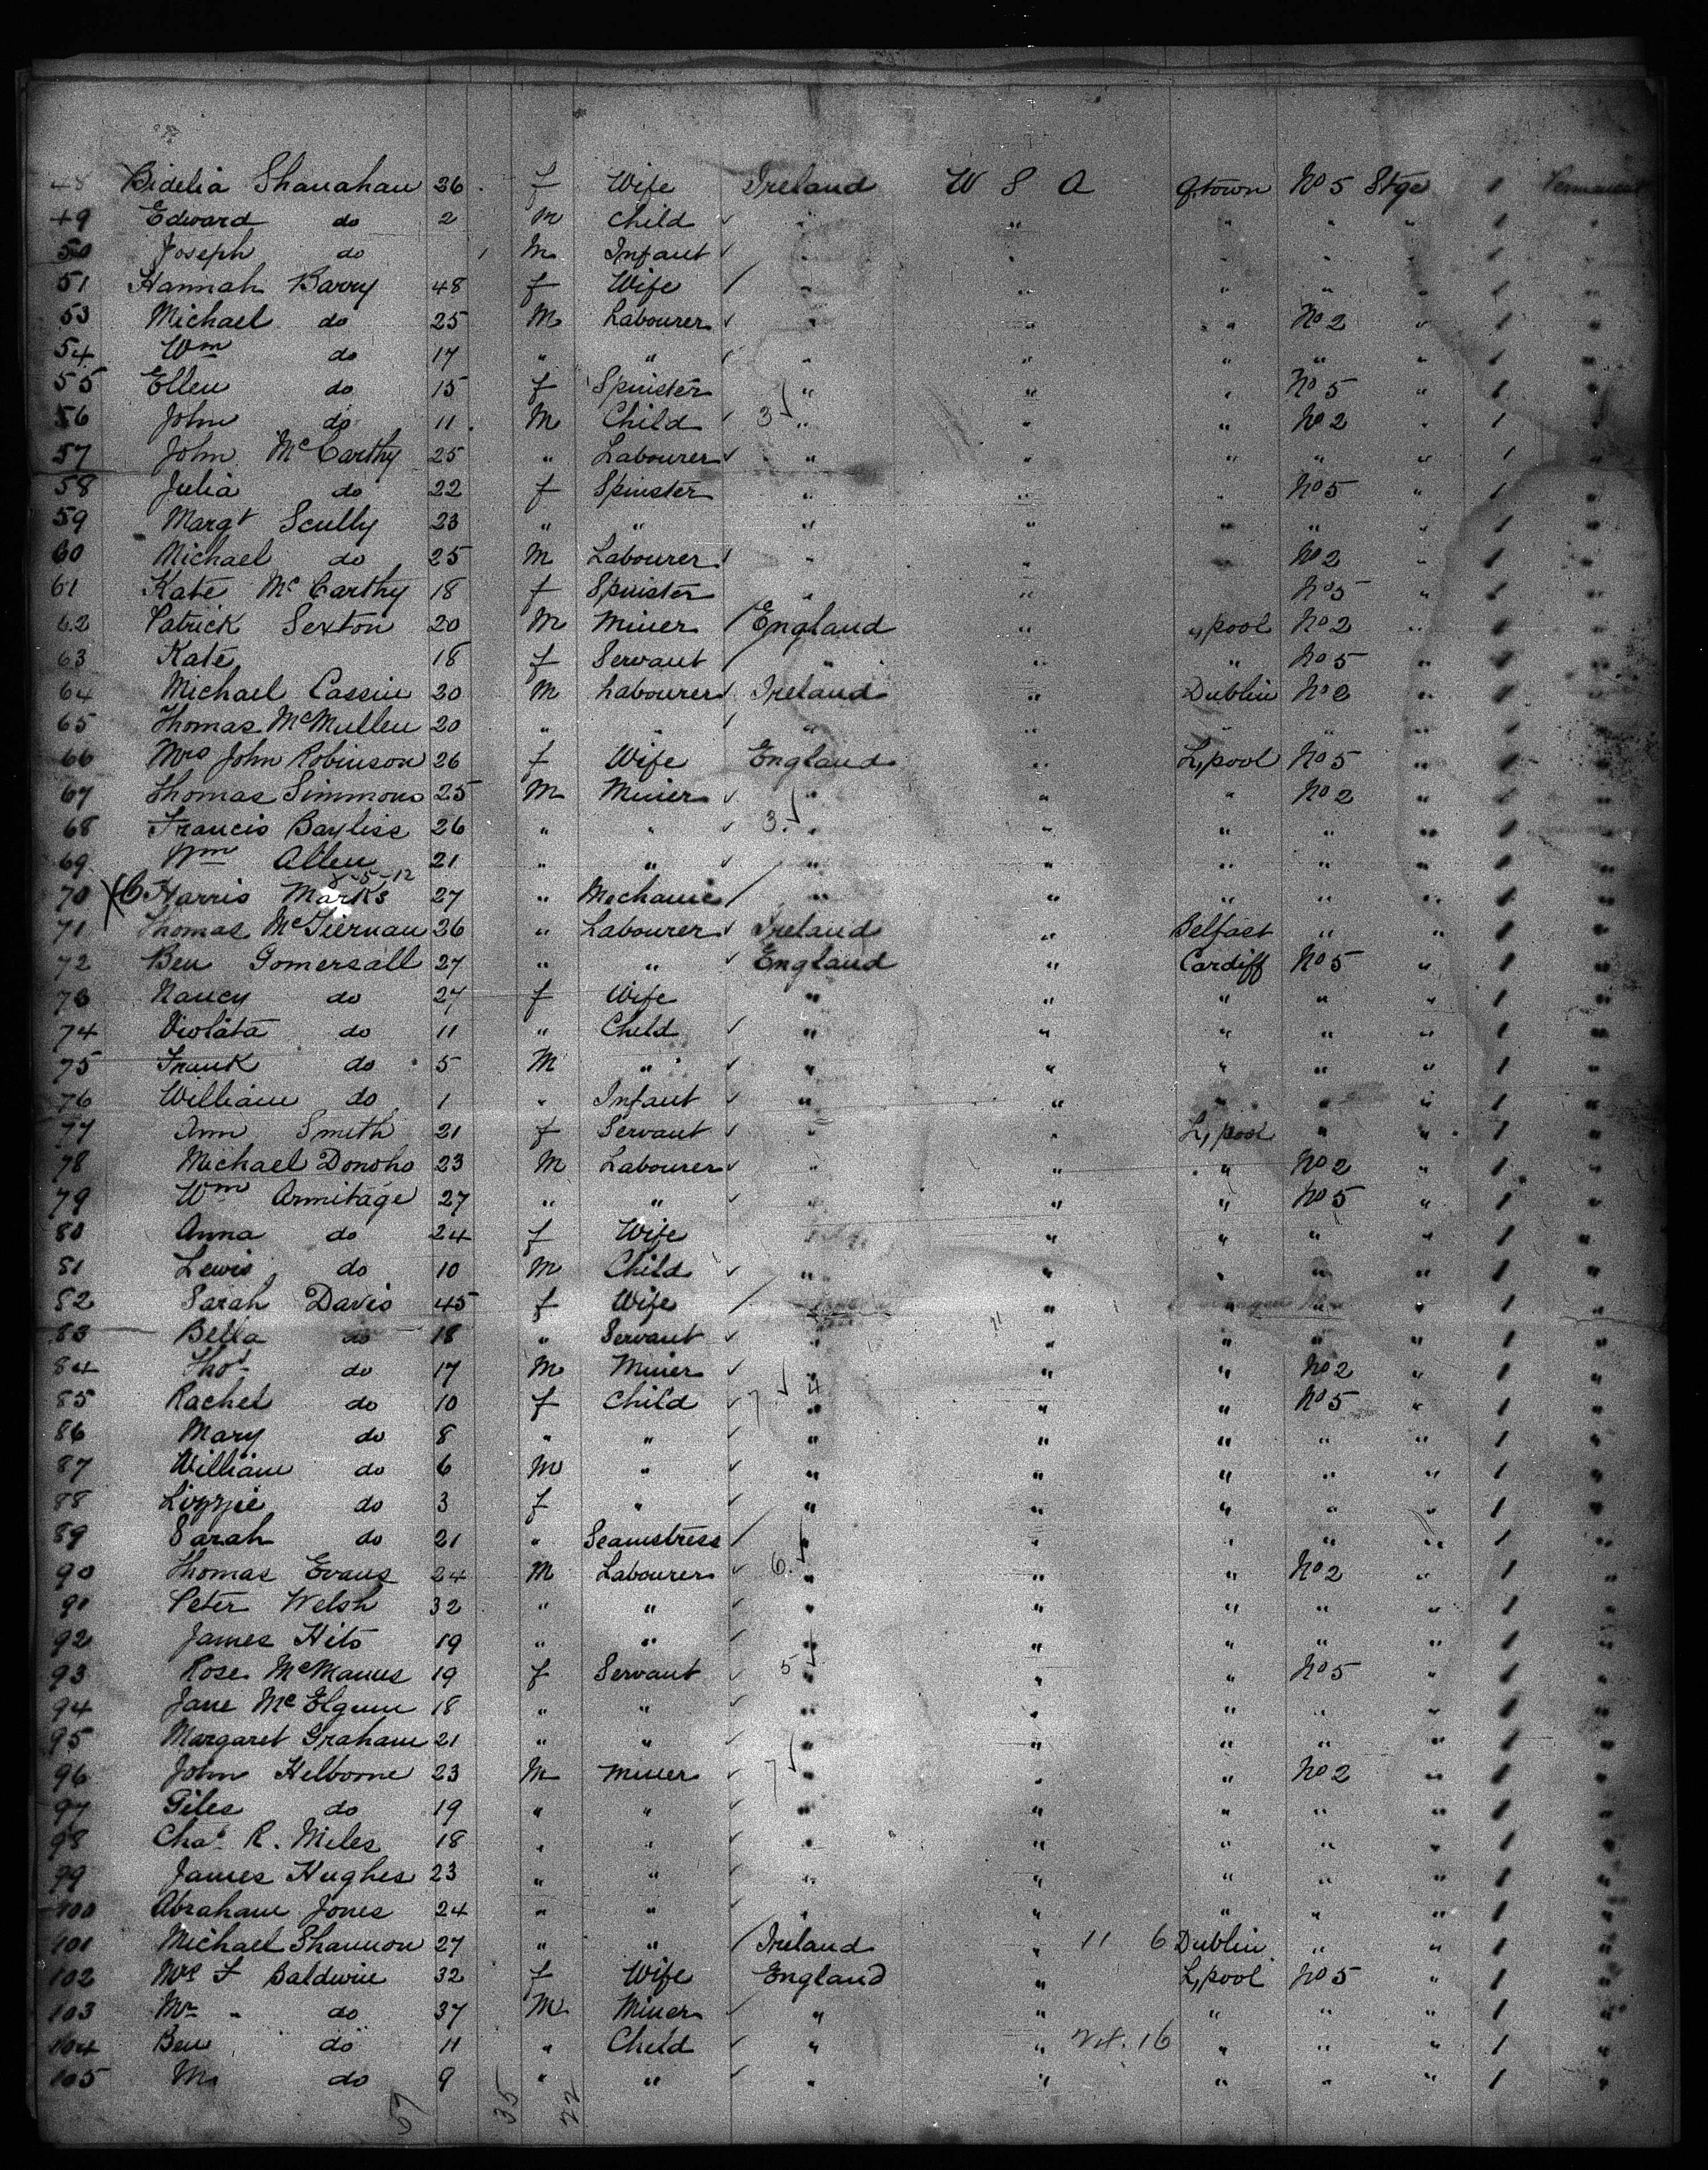 48 Bidelia Shanahan 26 f Wife Ireland U S A Qtown No 5 Stge 1
49 Edward do 2 M Child " " " " " 1 "
50 Joseph do 1 M Infant " " " " " 1 "
51 Hannah Barry 48 f Wife " " " " " 1 "
53 Michael do 25 M Labourer " " " No 2 " 1 "
54 Wm do 17 " " " " " " " 1 "
55 Ellen do 15 f Spinster " " " No 5 " 1 "
56 John do 11 M Child 3 " " " No 2 " 1 "
57 John McCarthy 25 " Labourer " " " " " 1 "
58 Julia do 22 f Spinster " " " No 5 " 1 "
59 Margt Scully 23 " " " " " " " 1 "
60 Michael do 25 M Labourer " " " No 2 " 1 "
61 Kate McCarthy 18 f Spinster " " No 5 " 1 "
62 Patrick Sexton 20 M Miner England " L,pool No 2 " 1 "
63 Kate 18 f Servant " " " No 5 " 1 "
64 Michael Cassin 20 M Labourer Ireland " Dublin No 2 " 1 "
65 Thomas McMullen 20 " " " " " " " 1 "
66 Mrs John Robinson 26 f Wife England " L,pool No 5 " 1 "
67 Thomas Simmons 25 M Miner " " " No 2 " 1 "
68 Francis Bayliss 26 " " 3 " " " " " 1 "
69 Wm Allen 21 " " " " " " " 1 "
70 Harris Marks 27 " Mechanic " " " " " 1 "
71 Thomas McTiernan 26 " Labourer Ireland " Belfast " " 1 "
72 Ben Gomersall 27 " " England " Cardiff No 5 " 1 "
73 Nancy do 27 f Wife " " " " " 1 "
74 Violata do 11 " Child " " " " " 1 "
75 Frank do 5 M " " " " " " 1 "
76 William do 1 " Infant " " " " " 1 "
77 Ann Smith 21 f Servant " " L,pool " " 1 "
78 Michael Donoho 23 M Labourer " " " No 2 " 1 "
79 Wm Armitage 27 " " " " " No 5 " 1 "
80 Anna do 24 f Wife " " " " 1 "
81 Lewis do 10 M Child " " " " " 1 "
82 Sarah Davis 45 f Wife " " " " 1 "
83 Bella do 18 " Servant " " " " " 1 "
84 Thos do 17 M Miner " " " No 2 " 1 "
85 Rachel do 10 f Child 7 4 " " " No 5 " 1 "
86 Mary do 8 " " " " " " " 1 "
87 William do 6 M " " " " " " 1 "
88 Lizzie do 3 f " " " " " " 1 "
89 Sarah do 21 " Seamstress " " " " " 1 "
90 Thomas Evans 24 M Labourer 6 " " " No 2 " 1 "
91 Peter Welsh 32 " " " " " " " 1 "
92 James Hito 19 " " " " " " " 1 "
93 Rose McManus 19 f Servant 5 " " " No 5 " 1 "
94 Jane McElgunn 18 " " " " " " " 1 "
95 Margaret Graham 21 " " " " " " " 1 "
96 John Helborne 23 M Miner 7 " " " No 2 " 1 "
97 Giles do 19 " " " " " " " 1 "
98 Chas R. Miles 18 " " " " " " " 1 "
99 James Hughes 23 " " " " " " " 1 "
100 Abraham Jones 24 " " " " " " " 1 "
101 Michael Shannon 27 " " Ireland " 11 6 Dublin " " 1 "
102 Mrs F Baldwin 32 f Wife England " L,pool No 5 " 1 "
103 Mr " do 37 M Miner " " " " " 1 "
104 Ben do 11 " Child " " 16 " " " 1 "
105 M do 9 " " " " " " " 1 "
57 35 22